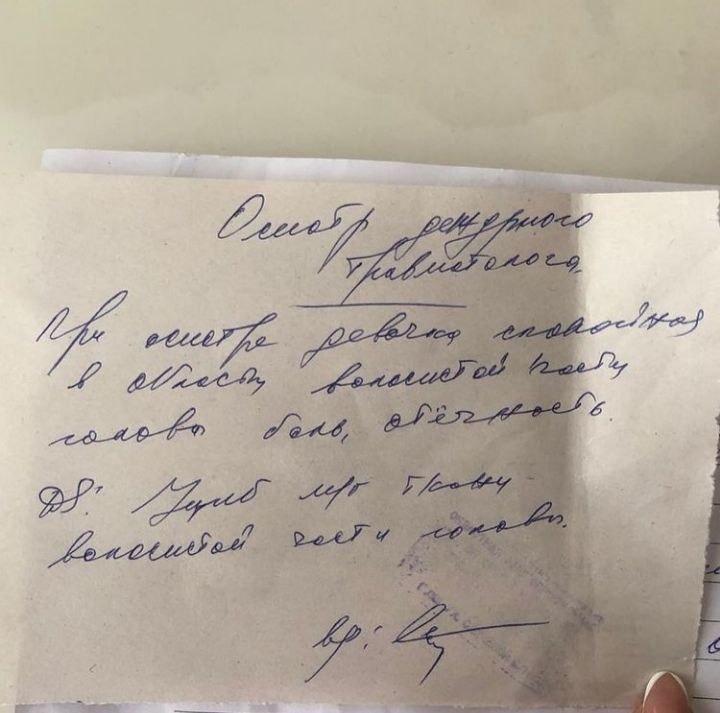 Осмотр дежурного
травматолога
При осмотре девочка спокойная
в области волосистой части
головы боль, отёчность.
DS: Ушиб мяг ткани
волосистой части головы.
вр: